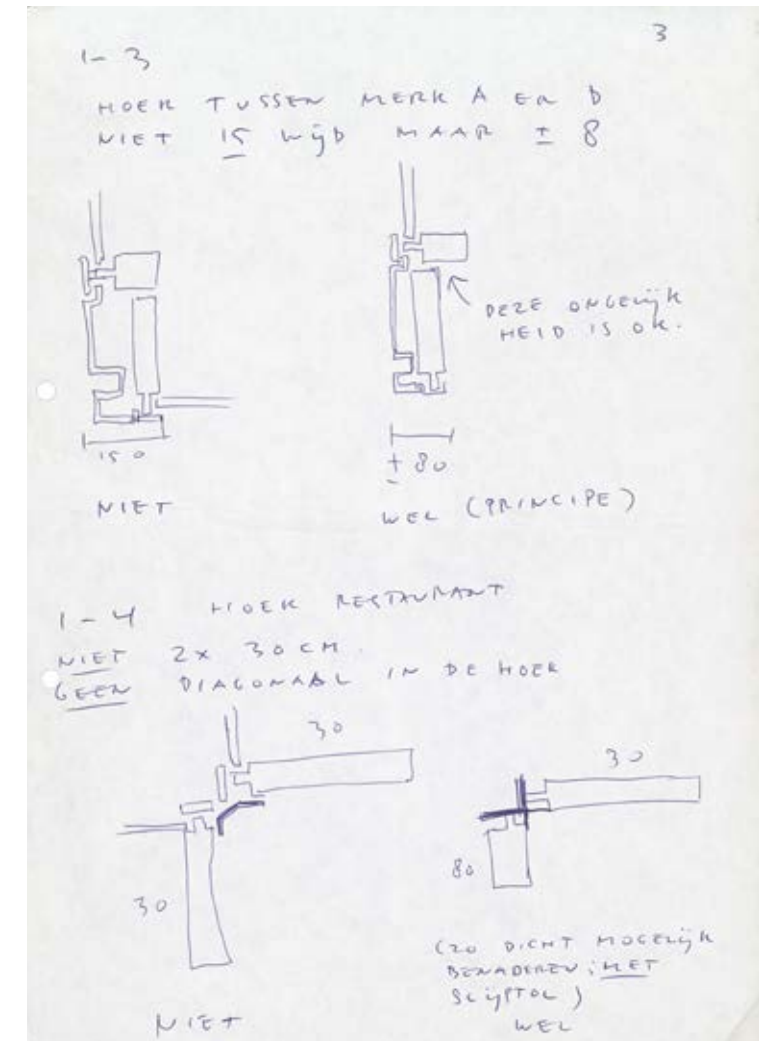 3
1-3
HOEK TUSSEN MERK A EN D
NIET 15 WIJD MAAR ± 8
DEZE ONGELIJK
HEID IS OK.
150
± 80
NIET
WEL (PRINCIPE)
1-4 HOEK RESTAURANT
NIET 2x 30 CM.
GEEN DIAGONAAL IN DE HOEK
30
30
30
80
(ZO DICHT MOGELIJK
BENADEREN; MET
SLIJPTOL)
NIET
WEL